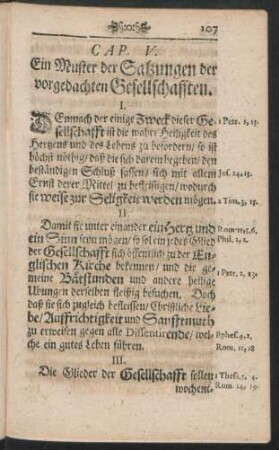 107
CAP. V.
Ein Muster der Satzungen der
vorgedachten Gesellschafften.
I.
DEmnach der einige Zweck dieser Ge- 1 Petr. 1, 15.
sellschafft ist die wahre Heiligkeit des
Hertzens und des Lebens zu befördern/ so ist
höchst nöthig/ daß die sich darein begeben/ den
beständigen Schluß fassen/ sich mit allem Jos. 24, 15.
Ernst derer Mittel zu befleissigen/ wodurch
sie weise zur Seligkeit werden mögen. 2 Tim. 3, 15.
II.
Damit sie unter einander ein Hertz und Rom. 15, 5. 6.
ein Sinn seyn mögen/ so sol ein jedes Glied Phil. 2, 2.
der Gesellschafft sich öffentlich zu der En-
glischen Kirche bekennen/ und die ge- 1 Petr. 2, 13.
meine Bätstunden und andere heilige
Ubungen derselben fleißig besuchen. Doch
daß sie sich zugleich befleissen/ Christliche Lie-
be/ Auffrichtigkeit und Sanfftmuth
zu erweisen gegen alle Dissentirende/ wel- Ephes. 4, 2.
che ein gutes Leben führen. Rom. 12, 18
III.
Die Glieder der Gesellschafft sollen 1 Thess. 5, 4.
wochent- Rom. 14, 19.